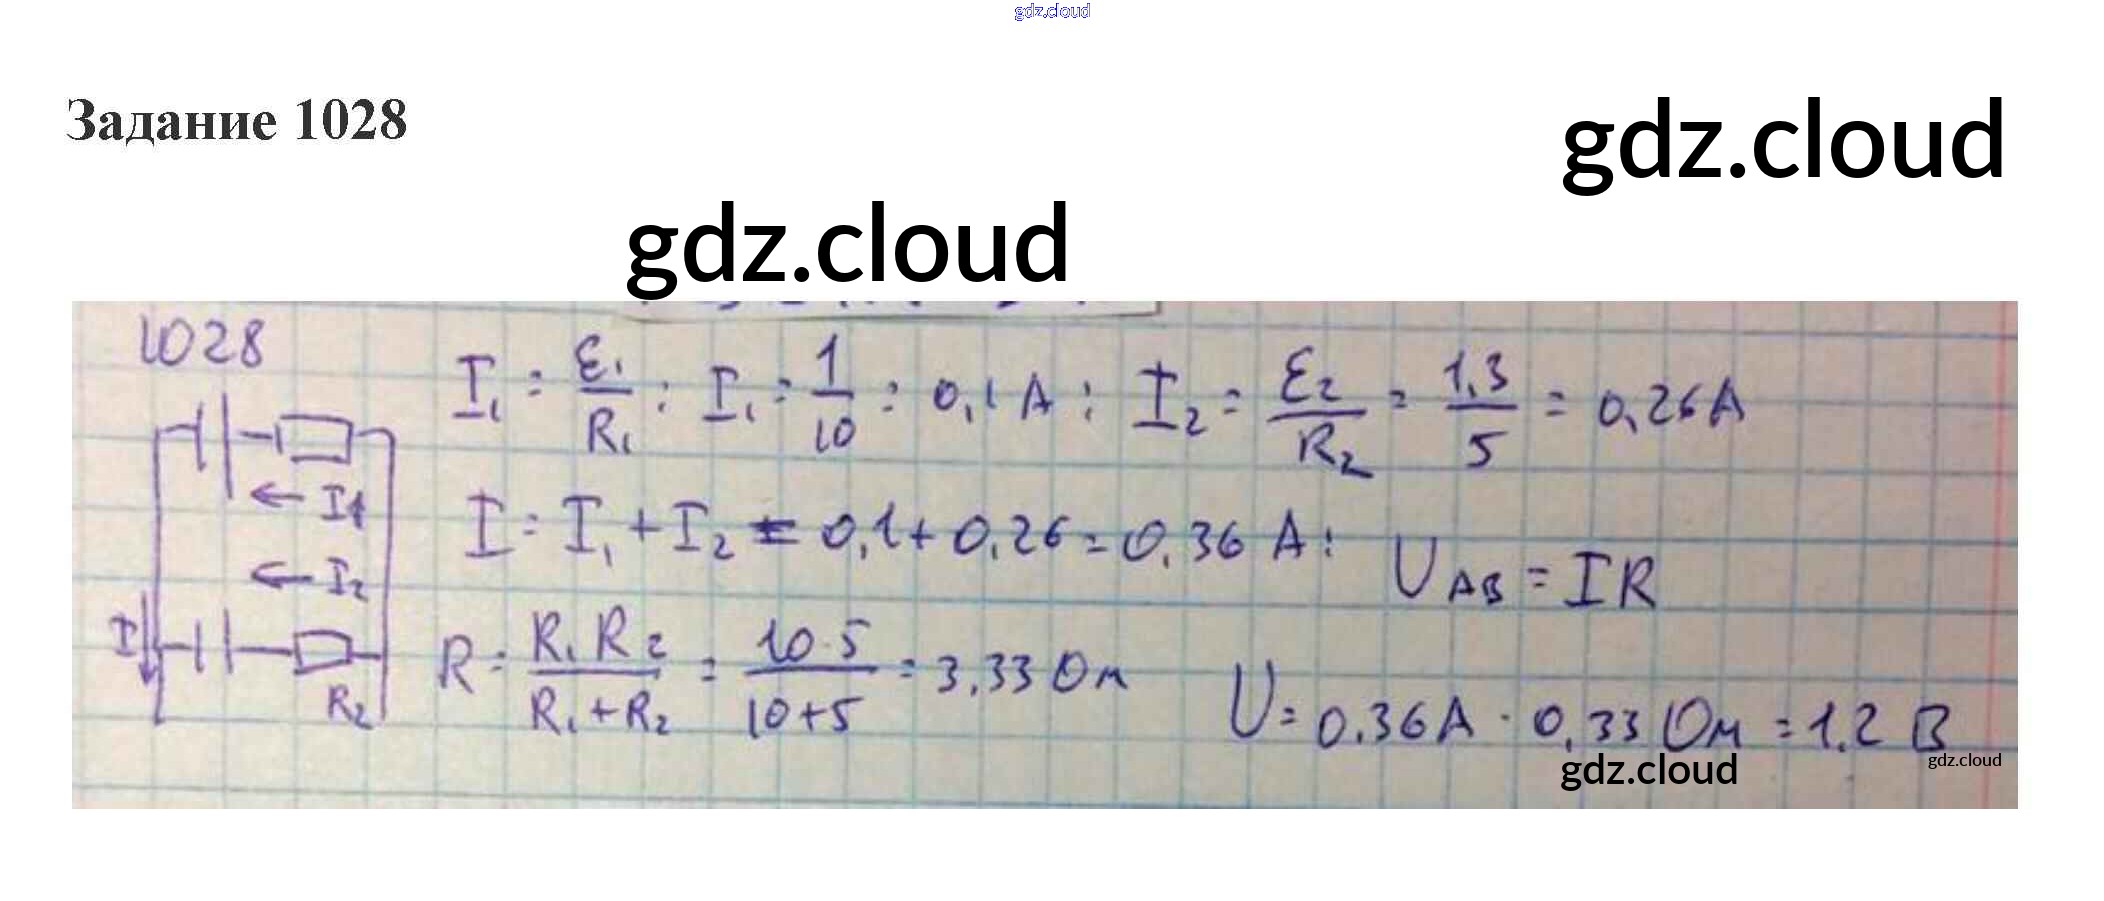 gdz.cloud
Задание 1028
gdz.cloud
gdz.cloud
1028
I₁ = ε₁/R₁ ; I₁ = 1/10 = 0,1 A ; I₂ = ε₂/R₂ = 1,3/5 = 0,26 A
← I1
I = I₁ + I₂ = 0,1 + 0,26 = 0,36 A ;
U_AB = IR
← I₂
I
R = R₁R₂/(R₁+R₂) = 10·5/(10+5) = 3,33 Ом
R₂
U = 0.36 A · 0,33 Ом = 1.2 В
gdz.cloud
gdz.cloud